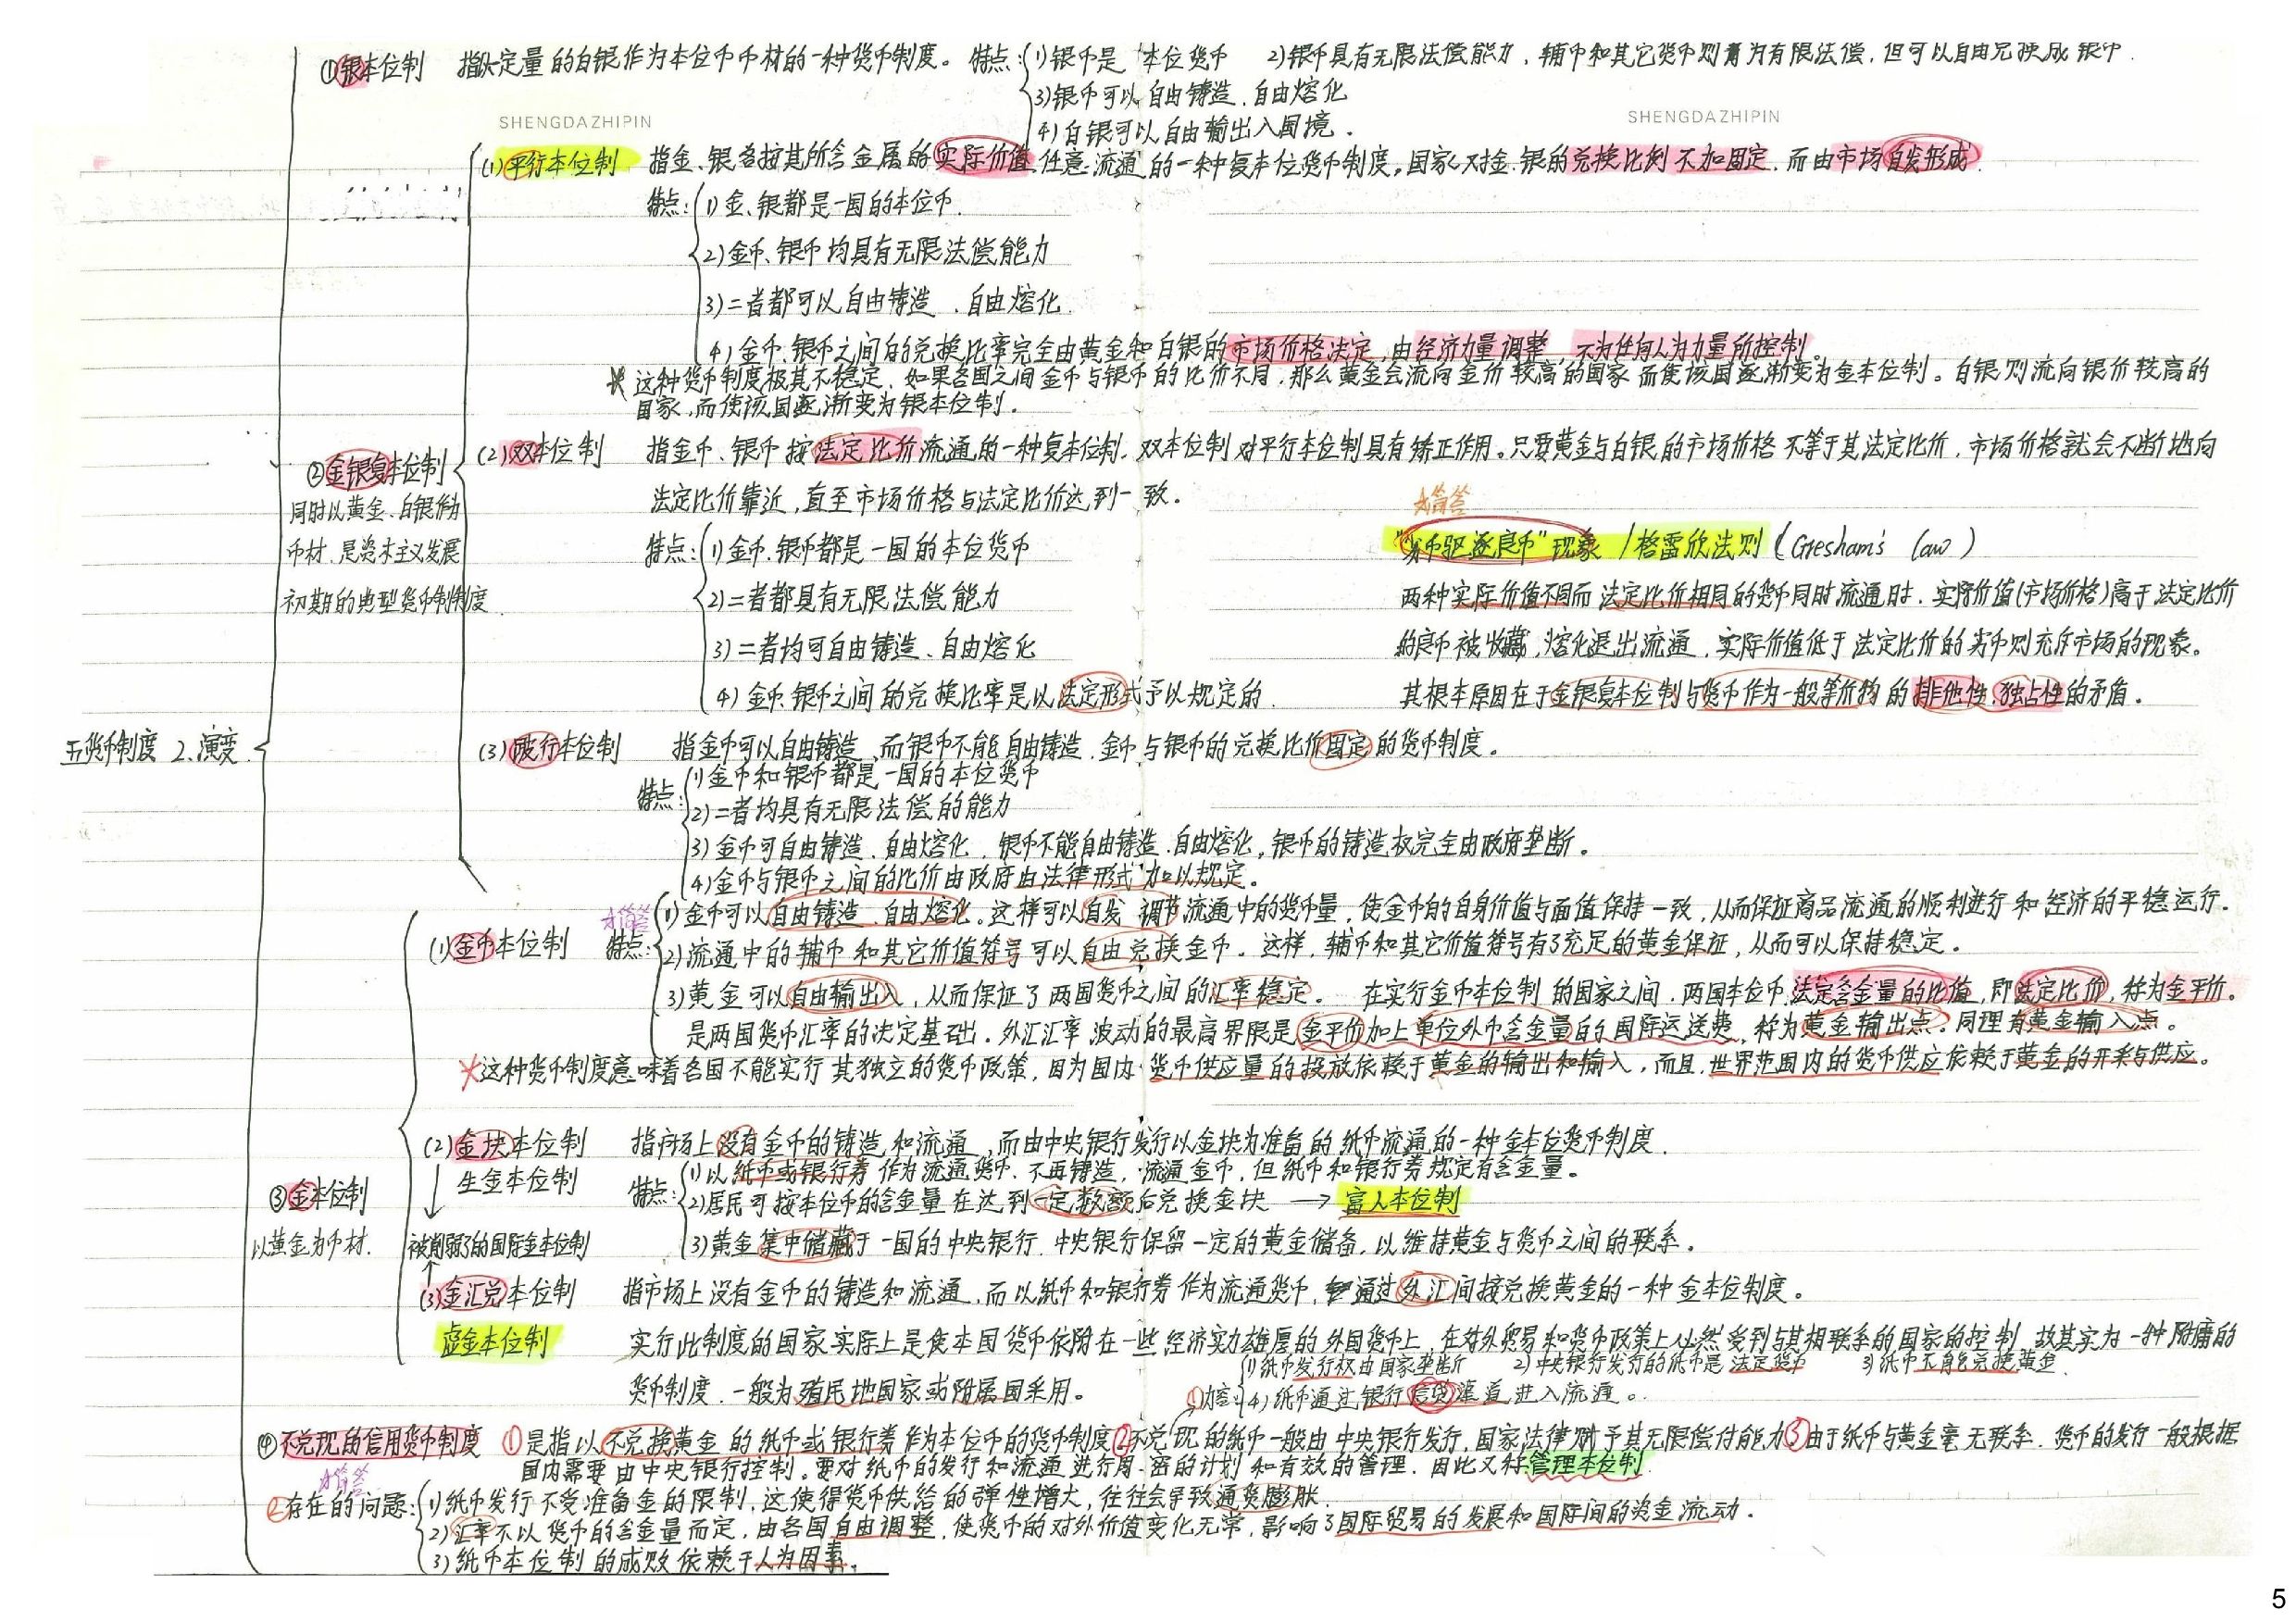 ①银本位制 指以定量的白银作为本位币币材的一种货币制度。特点:(1)银币是 本位货币 2)银币具有无限法偿能力,辅币和其它货币则常为有限法偿,但可以自由兑换成银币.
3)银币可以自由铸造、自由熔化
SHENGDAZHIPIN SHENGDAZHIPIN
4)白银可以自由输出入国境.
(1)平行本位制 指金、银各按其所含金属的实际价值任意流通的一种复本位货币制度,国家对金、银的兑换比例不加固定,而由市场自发形成.
特点:(1)金、银都是一国的本位币.
2)金币、银币均具有无限法偿能力
3)二者都可以自由铸造、自由熔化.
4)金币、银币之间的兑换比率完全由黄金和白银的市场价格决定,由经济力量调整 不为任何人为力量所控制。
*这种货币制度极其不稳定,如果各国之间金币与银币的比价不同,那么黄金会流向金价较高的国家而使该国逐渐变为金本位制。白银则流向银价较高的
国家,而使该国逐渐变为银本位制.
②金银复本位制
同时以黄金、白银作为
币材,是资本主义发展
初期的典型货币制度.
(2)双本位制 指金币、银币按法定比价流通的一种复本位制.双本位制对平行本位制具有矫正作用。只要黄金与白银的市场价格不等于其法定比价,市场价格就会不断地向
法定比价靠近,直至市场价格与法定比价达到一致。
特点:(1)金币、银币都是一国的本位货币
2)二者都具有无限法偿能力
3)二者均可自由铸造、自由熔化
4)金币、银币之间的兑换比率是以法定形式予以规定的.
☆简答
"劣币驱逐良币"现象/格雷欣法则(Gresham's law)
两种实际价值不同而法定比价相同的货币同时流通时,实际价值(市场价格)高于法定比价
的良币被收藏,熔化退出流通,实际价值低于法定比价的劣币则充斥市场的现象。
其根本原因在于金银复本位制与货币作为一般等价物的排他性、独占性的矛盾.
五货币制度 2.演变
(3)跛行本位制 指金币可以自由铸造,而银币不能自由铸造,金币与银币的兑换比价固定的货币制度。
特点:(1)金币和银币都是一国的本位货币
2)二者均具有无限法偿的能力
3)金币可自由铸造、自由熔化,银币不能自由铸造、自由熔化,银币的铸造权完全由政府垄断。
4)金币与银币之间的比价由政府由法律形式加以规定。
③金本位制
以黄金为币材.
(1)金币本位制 ☆简答 特点:(1)金币可以自由铸造、自由熔化。这样可以自发调节流通中的货币量,使金币的自身价值与面值保持一致,从而保证商品流通的顺利进行和经济的平稳运行.
2)流通中的辅币和其它价值符号可以自由兑换金币。这样,辅币和其它价值符号有了充足的黄金保证,从而可以保持稳定。
3)黄金可以自由输出入,从而保证了两国货币之间的汇率稳定。 在实行金币本位制的国家之间,两国本位币法定含金量的比值,即法定比价,称为金平价。
是两国货币汇率的决定基础.外汇汇率波动的最高界限是金平价加上单位外币含金量的国际运送费,称为黄金输出点.同理有黄金输入点。
*这种货币制度意味着各国不能实行其独立的货币政策,因为国内货币供应量的投放依赖于黄金的输出和输入,而且,世界范围内的货币供应依赖于黄金的开采与供应。
(2)金块本位制 指市场上没有金币的铸造和流通,而由中央银行发行以金块为准备的纸币流通的一种金本位货币制度.
生金本位制
特点:(1)以纸币或银行券作为流通货币.不再铸造,流通金币,但纸币和银行券规定有含金量。
2)居民可按本位币的含金量在达到一定数额后兑换金块 → 富人本位制
3)黄金集中储藏于一国的中央银行.中央银行保留一定的黄金储备,以维持黄金与货币之间的联系。
被削弱了的国际金本位制
(3)金汇兑本位制 指市场上没有金币的铸造和流通,而以纸币和银行券作为流通货币,通过外汇间接兑换黄金的一种金本位制度。
虚金本位制 实行此制度的国家实际上是使本国货币依附在一些经济实力雄厚的外国货币上,在对外贸易和货币政策上必然受到与其相联系的国家的控制,故其实为一种附庸的
货币制度.一般为殖民地国家或附属国采用。
①内容:(1)纸币发行权由国家垄断 2)中央银行发行的纸币是法定货币 3)纸币不能兑换黄金.
4)纸币通过银行信贷渠道进入流通。
④不兑现的信用货币制度 ①是指以不兑换黄金的纸币或银行券作为本位币的货币制度②不兑现的纸币一般由中央银行发行,国家法律赋予其无限偿付能力③由于纸币与黄金毫无联系,货币的发行一般根据
国内需要由中央银行控制。要对纸币的发行和流通进行周密的计划和有效的管理.因此又称管理本位制.
☆简答
②存在的问题:(1)纸币发行不受准备金的限制,这使得货币供给的弹性增大,往往会导致通货膨胀.
2)汇率不以货币的含金量而定,由各国自由调整,使货币的对外价值变化无常,影响了国际贸易的发展和国际间的资金流动.
3)纸币本位制的成败依赖于人为因素。
5